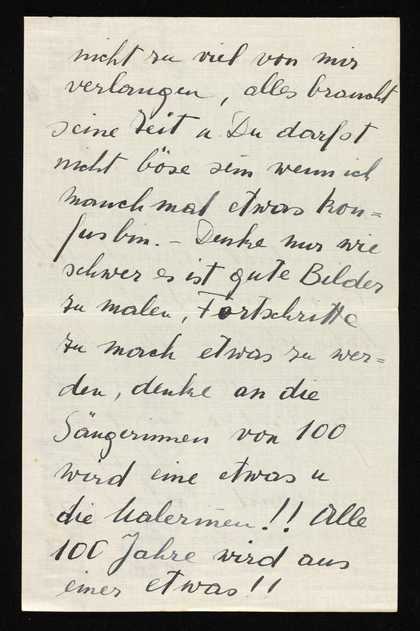 nicht zu viel von mir
verlangen, alles braucht
seine Zeit u Du darfst
nicht böse sein wenn ich
manchmal etwas kon=
fus bin. – Denke nur wie
schwer es ist gute Bilder
zu malen, Fortschritte
zu mach etwas zu wer=
den, denke an die
Sängerinnen von 100
wird eine etwas u
die Malerinen!! Alle
100 Jahre wird aus
einer etwas!!